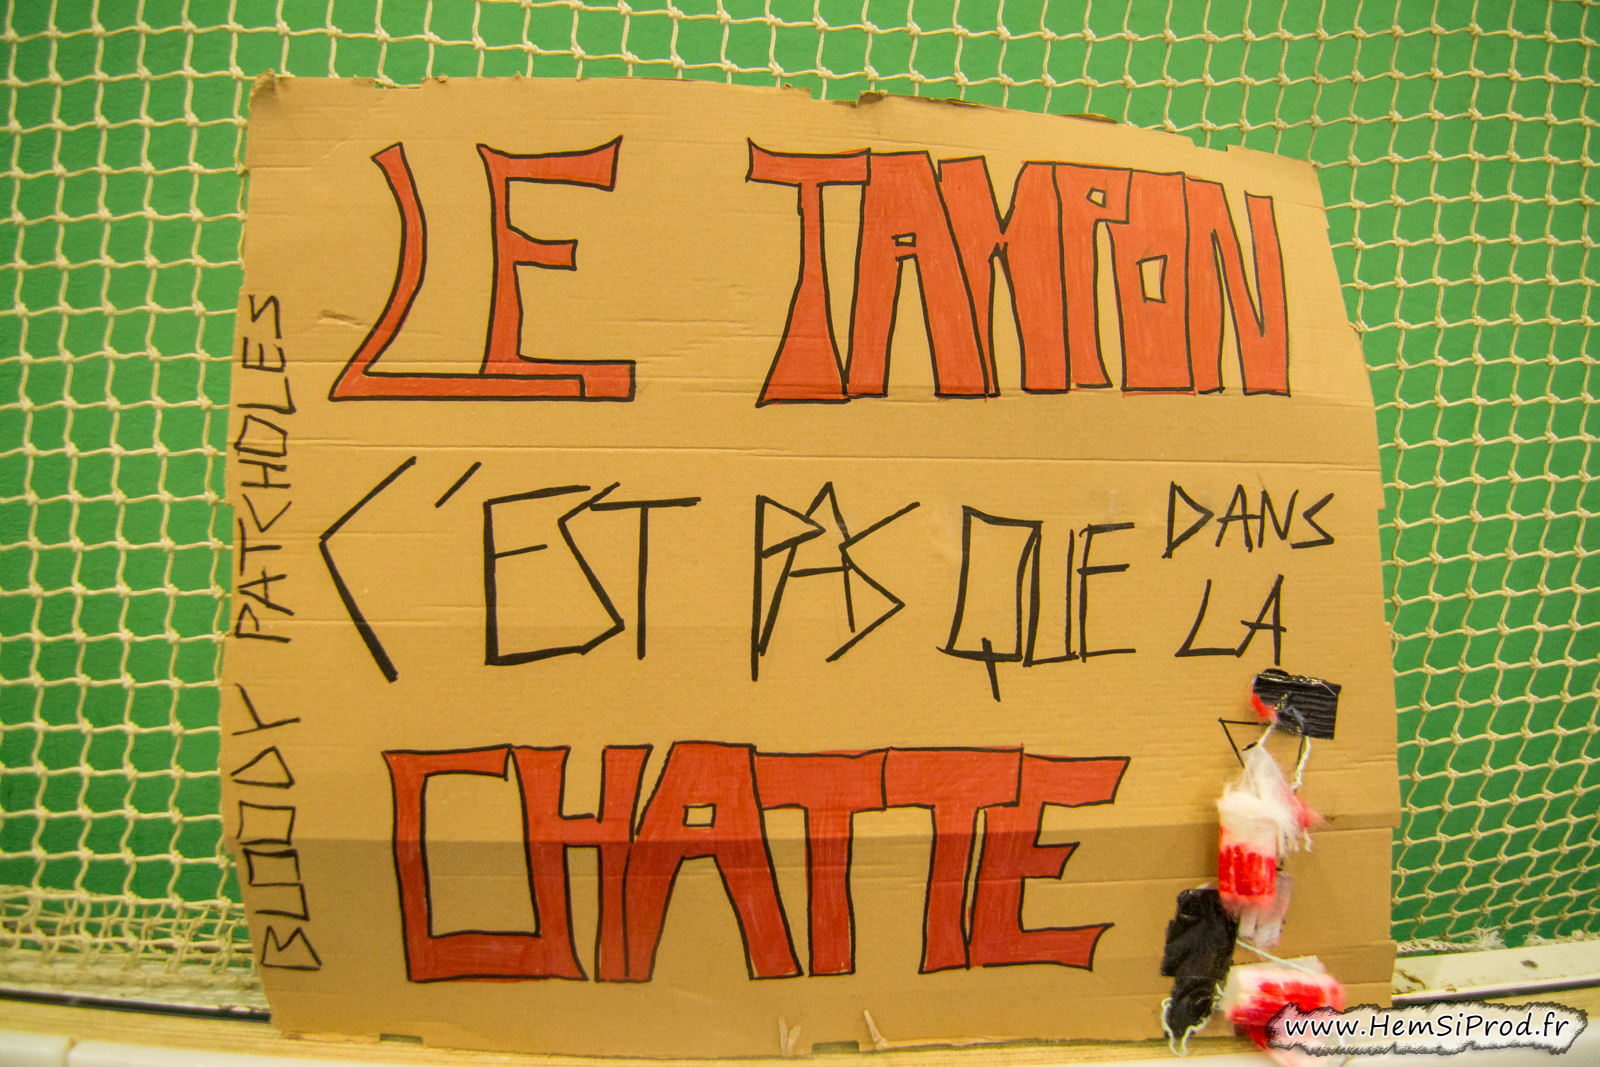 LE TAMPON
C'EST PAS QUE DANS
LA
CHATTE
BLOODY PATCHOLES
www.HemSiProd.fr